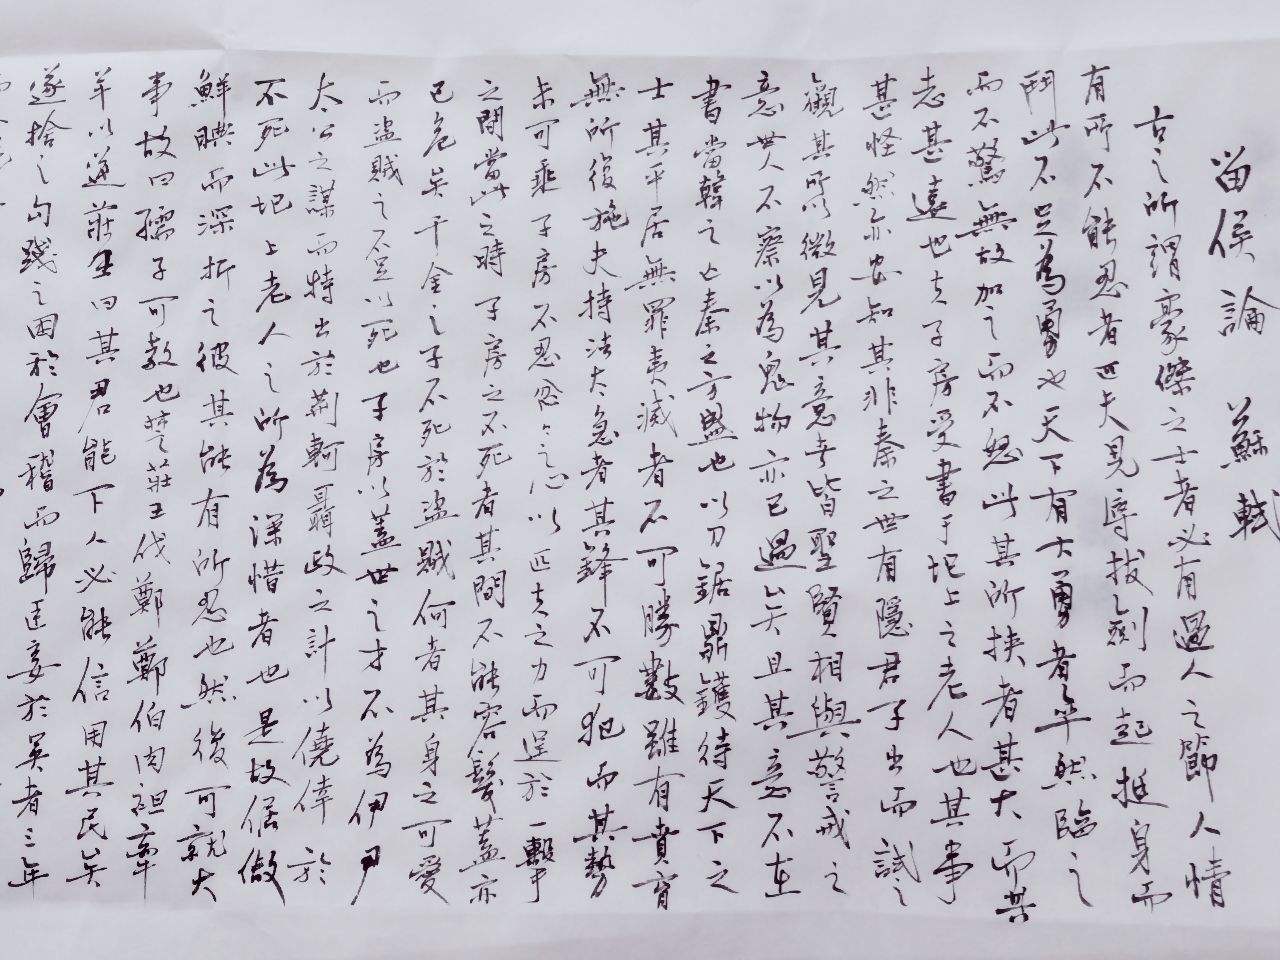 留侯論 蘇軾
古之所謂豪傑之士者必有過人之節人情
有所不能忍者匹夫見辱拔劍而起挺身而
鬥此不足為勇也天下有大勇者卒然臨之
而不驚無故加之而不怒此其所挾者甚大而其
志甚遠也夫子房受書于圯上之老人也其事
甚怪然亦安知其非秦之世有隱君子出而試之
觀其所以微見其意者皆聖賢相與警戒之
意世人不察以為鬼物亦已過矣且其意不在
書當韓之亡秦之方盛也以刀鋸鼎鑊待天下之
士其平居無罪夷滅者不可勝數雖有賁育
無所復施夫持法太急者其鋒不可犯而其勢
未可乘子房不忍忿忿之心以匹夫之力而逞於一擊
之間當此之時子房之不死者其間不能容髮蓋亦
已危矣千金之子不死於盜賊何者其身之可愛
而盜賊之不足以死也子房以蓋世之才不為伊尹
太公之謀而特出於荊軻聶政之計以僥倖於
不死此圯上老人之所為深惜者也是故倨傲
鮮腆而深折之彼其能有所忍也然後可就大
事故曰孺子可教也楚莊王伐鄭鄭伯肉袒牽
羊以逆莊王曰其君能下人必能信用其民矣
遂捨之勾踐之困於會稽而歸臣妾於吳者三年